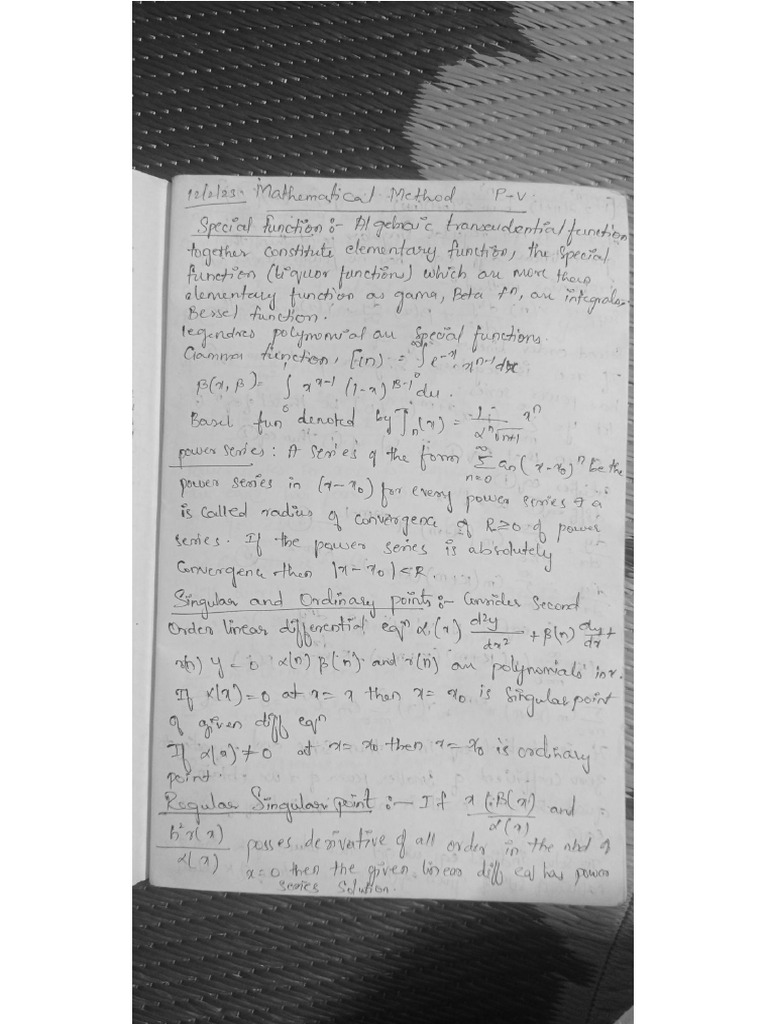 12/2/23. Mathematical Method P-V
Special function :- Algebraic transcudential function
together constitute elementary function, the special
function (liquor function) which are more than
elementary function as gama, Beta fⁿ, are integrales.
Bessel function.
legendres polynomial are special functions.
Gamma function, Γ(n) = ∫₀^∞ e⁻ˣ. xⁿ⁻¹ dx
β(α, β) = ∫₀ x^(α-1) (1-x)^(β-1) du.
Basel funⁿ denoted by Jₙ(x) = xⁿ
power series: A series of the form ∑_{n=0}^∞ an (x-x₀)ⁿ be the
power series in (x-x₀) for every power series f a
is called radius of convergence of R≥0 of power
series. If the power series is absolutely
Convergence then |x-x₀|<R.
Singular and Ordinary points :- Consider second
order linear differential eqⁿ α(x) d²y/dx² + β(n) dy/dx +
r(n) y = 0 α(n) β(n) and r(n) are polynomials in x.
If α(x)=0 at x=x then x=x₀ is singular point
of given diff eqⁿ
If α(x)≠0 at x=x₀ then x=x₀ is ordinary
point.
Regular Singular point :- If x β(x)/α(x) and
h²r(x)/α(x) posses derivative of all order in the nbd of
x=0 then the given linear diff eq has power
series solution.